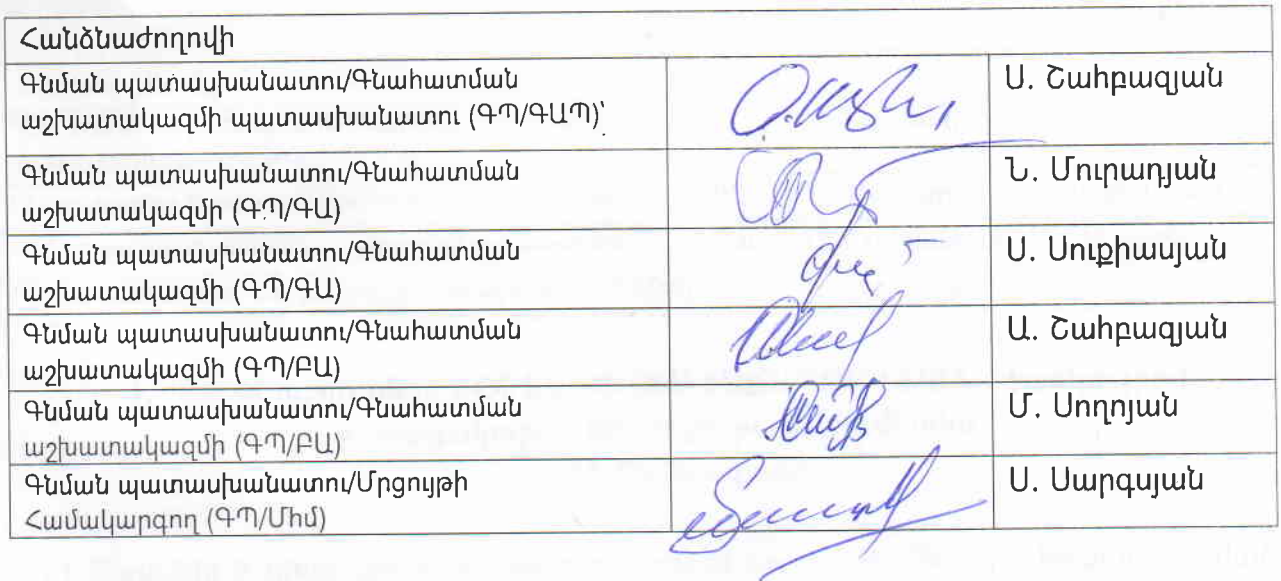 Հանձնաժողովի
Գնման պատասխանատու/Գնահատման
աշխատակազմի պատասխանատու (ԳՊ/ԳԱՊ)՝
Ս. Շահբազյան
Գնման պատասխանատու/Գնահատման
աշխատակազմի (ԳՊ/ԳԱ)
Ն. Մուրադյան
Գնման պատասխանատու/Գնահատման
աշխատակազմի (ԳՊ/ԳԱ)
Ս. Սուքիասյան
Գնման պատասխանատու/Գնահատման
աշխատակազմի (ԳՊ/ԲԱ)
Ա. Շահբազյան
Գնման պատասխանատու/Գնահատման
աշխատակազմի (ԳՊ/ԲԱ)
Մ. Սողոյան
Գնման պատասխանատու/Մրցույթի
Համակարգող (ԳՊ/Միմ)
Ս. Սարգսյան